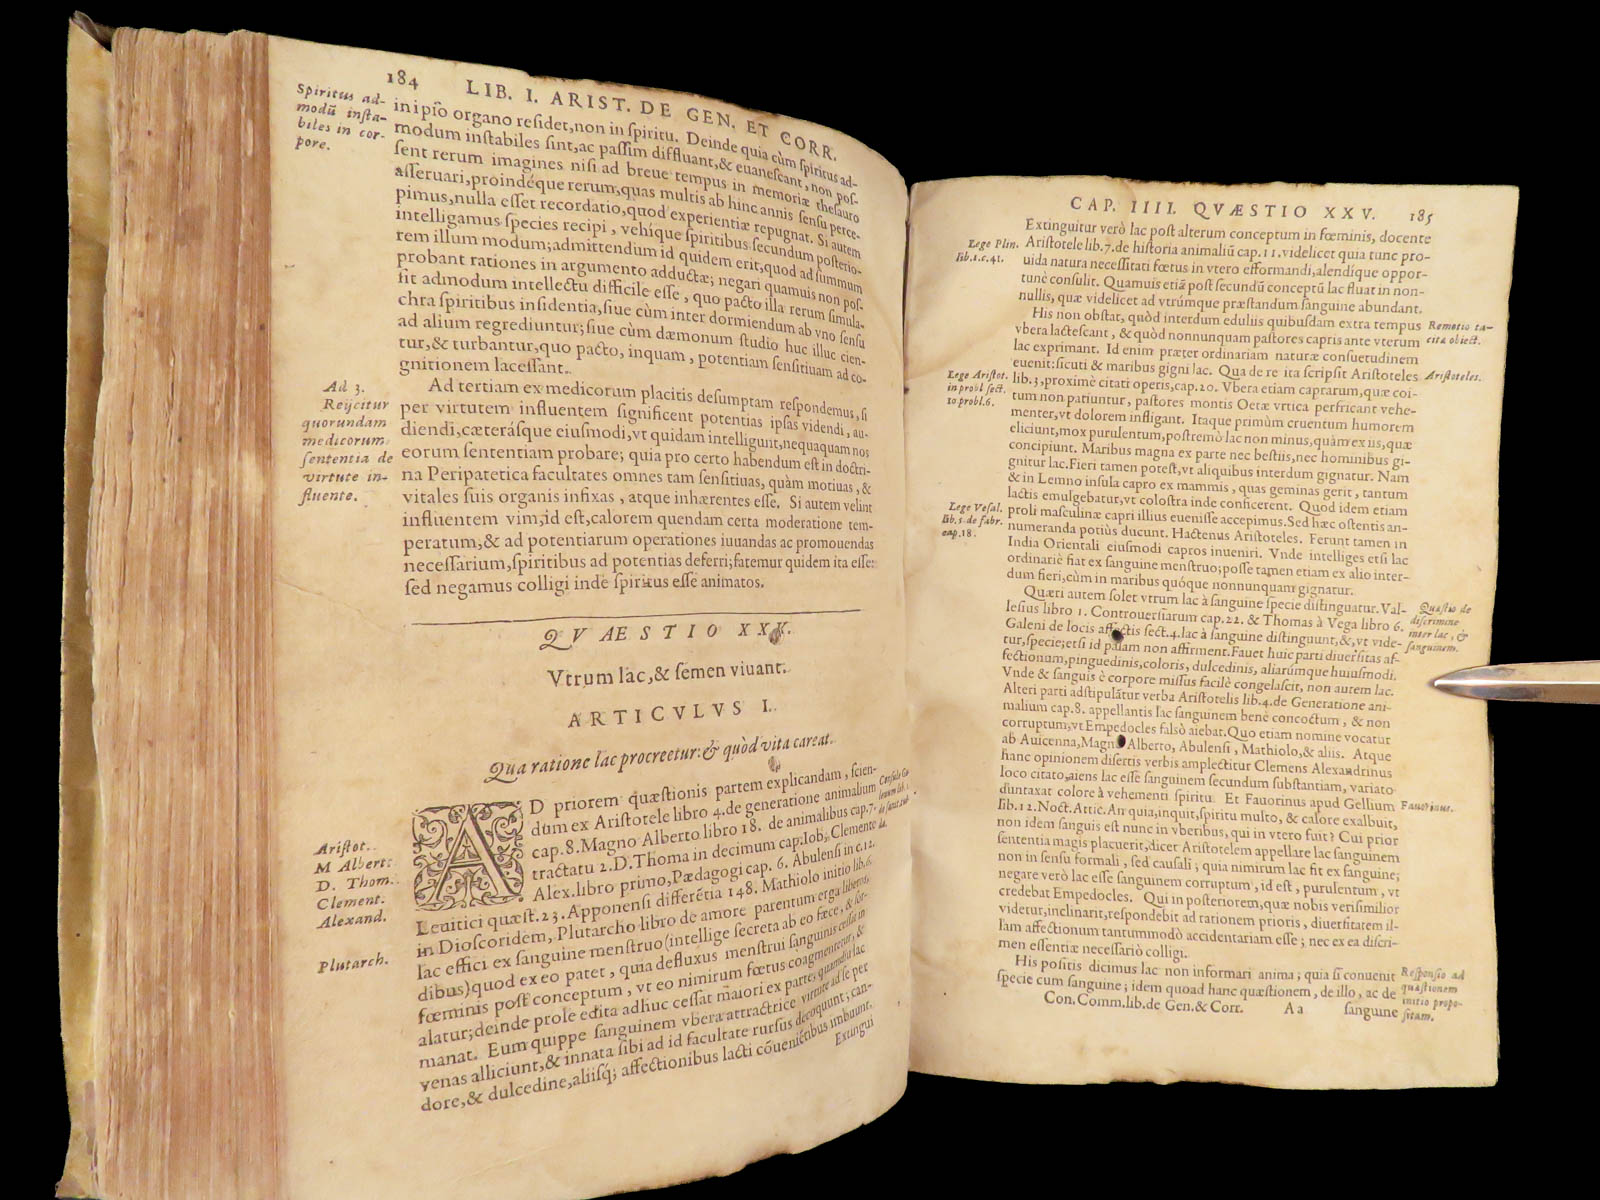 184 LIB. I. ARIST. DE GEN. ET CORR.
Spiritus ad-
modũ insta-
biles in cor-
pore.
in ipſo organo reſidet, non in ſpiritu. Deinde quia cùm ſpiritus ad-
modum inſtabiles ſint, ac paſſim diffluant, & euaneſcant, non poſ-
ſent rerum imagines niſi ad breue tempus in memoriæ theſauro
aſſeruari, proindéque rerum, quas multis ab hinc annis ſenſu perce-
pimus, nulla eſſet recordatio, quod experientiæ repugnat. Si autem
intelligamus ſpecies recipi, vehíque ſpiritibus ſecundum poſterio-
rem illum modum; admittendum id quidem erit, quod ad ſummum
probant rationes in argumento adductæ; negari quamuis non poſ-
ſit admodum intellectu difficile eſſe, quo pacto illa rerum ſimula-
chra ſpiritibus inſidentia, ſiue cùm inter dormiendum ab vno ſenſu
ad alium regrediuntur; ſiue cùm dæmonum ſtudio huc illuc cien-
tur, & turbantur, quo pacto, inquam, potentiam ſenſitiuam ad co-
gnitionem laceſſant.
Ad 3.
Reijcitur
quorundam
medicorum
ſententia de
virtute in-
fluente.
Ad tertiam ex medicorum placitis deſumptam reſpondemus, ſi
per virtutem influentem ſignificent potentias ipſas videndi, au-
diendi, cæterásque eiuſmodi, vt quidam intelligunt, nequaquam nos
eorum ſententiam probare; quia pro certo habendum eſt in doctri-
na Peripatetica facultates omnes tam ſenſitiuas, quàm motiuas, &
vitales ſuis organis infixas, atque inhærentes eſſe. Si autem velint
influentem vim, id eſt, calorem quendam certa moderatione tem-
peratum, & ad potentiarum operationes iuuandas ac promouendas
neceſſarium, ſpiritibus ad potentias deferri; fatemur quidem ita eſſe:
ſed negamus colligi inde ſpiritus eſſe animatos.
QVAESTIO XXV.
Vtrum lac, & ſemen viuant.
ARTICVLVS I.
Qua ratione lac procreetur: & quòd vita careat.
Ariſtot.
M Albert:
D. Thom.
Clement.
Alexand.
Plutarch.
AD priorem quæſtionis partem explicandam, ſcien-
dum ex Ariſtotele libro 4. de generatione animalium
cap. 8. Magno Alberto libro 18. de animalibus cap. 7.
tractatu 2. D. Thoma in decimum cap. Iob, Clemente
Alex. libro primo, Pædagogi cap. 6. Abulenſi in c. 12.
Leuitici quæſt. 23. Apponenſi differẽtia 148. Mathiolo initio lib. 6.
in Dioſcoridem, Plutarcho libro de amore parentum erga liberos,
lac effici ex ſanguine menſtruo (intellige ſecreta ab eo fæce, & ſor-
dibus) quod ex eo patet, quia defluxus menſtrui ſanguinis ceſſat in
fœminis poſt conceptum, vt eo nimirum fœtus coagmentetur, &
alatur; deinde prole edita adhuc ceſſat maiori ex parte, quamdiu lac
manat. Eum quippe ſanguinem vbera attractrice virtute ad ſe per
venas alliciunt, & innata ſibi ad id facultate rurſus decoquunt; can-
dore, & dulcedine, aliiſq́; affectionibus lacti cõuenientibus imbuunt.
Extingui
CAP. IIII. QVÆSTIO XXV. 185
Lege Plin.
lib. 1. c. 41.
Extinguitur verò lac poſt alterum conceptum in fœminis, docente
Ariſtotele lib. 7. de hiſtoria animaliũ cap. 11. videlicet quia tunc pro-
uida natura neceſſitati fœtus in vtero efformandi, alendíque oppor-
tunè conſulit. Quamuis etiã poſt ſecundũ conceptũ lac fluat in non-
nullis, quæ videlicet ad vtrúmque præſtandum ſanguine abundant.
Remotio ta-
cita obiect.
Ariſtoteles.
Lege Ariſtot.
in probl ſect.
10 probl. 6.
Lege Veſal.
lib. 1. de fabr.
cap. 18.
His non obſtat, quòd interdum eduliis quibuſdam extra tempus
vbera lacteſcant, & quòd nonnunquam paſtores capris ante vterum
lac exprimant. Id enim præter ordinariam naturæ conſuetudinem
euenit: ſicuti & maribus gigni lac. Qua de re ita ſcripſit Ariſtoteles
lib. 3. proximè citati operis, cap. 20. Vbera etiam caprarum, quæ coi-
tum non patiuntur, paſtores montis Oetæ vrtica perfricant vehe-
menter, vt dolorem infligant. Itaque primùm cruentum humorem
eliciunt, mox purulentum, poſtremò lac non minus, quàm ex iis, quæ
concipiunt. Maribus magna ex parte nec beſtiis, nec hominibus gi-
gnitur lac. Fieri tamen poteſt, vt aliquibus interdum gignatur. Nam
& in Lemno inſula capro ex mammis, quas geminas gerit, tantum
lactis emulgebatur, vt coloſtra inde conficerent. Quod idem etiam
proli maſculinæ capri illius eueniſſe accepimus. Sed hæc oſtentis an-
numeranda potiùs ducunt. Hactenus Ariſtoteles. Ferunt tamen in
India Orientali eiuſmodi capros inueniri. Vnde intelliges etſi lac
ordinariè fiat ex ſanguine menſtruo; poſſe tamen etiam ex alio inter-
dum fieri, cùm in maribus quóque nonnunquam gignatur.
Quæſtio de
diſcrimine
inter lac, &
ſanguinem.
Fauorinus.
Quæri autem ſolet vtrum lac à ſanguine ſpecie diſtinguatur. Val-
leſius libro 1. Controuerſiarum cap. 22. & Thomas à Vega libro 6.
Galeni de locis affectis ſect. 4. lac à ſanguine diſtinguunt, &, vt vide-
tur, ſpecie; etſi id palam non affirment. Fauet huic parti diuerſitas af-
fectionum, pinguedinis, coloris, dulcedinis, aliarúmque huiuſmodi.
Vnde & ſanguis è corpore miſſus facilè congelaſcit, non autem lac.
Alteri parti adſtipulãtur verba Ariſtotelis lib. 4. de Generatione ani-
malium cap. 8. appellantis lac ſanguinem benè concoctum, & non
corruptum, vt Empedocles falſò aiebat. Quo etiam nomine vocatur
ab Auicenna, Magno Alberto, Abulenſi, Mathiolo, & aliis. Atque
hanc opinionem diſertis verbis amplectitur Clemens Alexandrinus
loco citato, aiens lac eſſe ſanguinem ſecundum ſubſtantiam, variato
duntaxat colore à vehementi ſpiritu. Et Fauorinus apud Gellium
lib. 12. Noct. Attic. An quia, inquit, ſpiritu multo, & calore exalbuit,
non idem ſanguis eſt nunc in vberibus, qui in vtero fuit? Cui prior
ſententia magis placuerit, dicet Ariſtotelem appellare lac ſanguinem
non in ſenſu formali, ſed cauſali; quia nimirum lac fit ex ſanguine;
negare verò lac eſſe ſanguinem corruptum, id eſt, purulentum, vt
credebat Empedocles. Qui in poſteriorem, quæ nobis veriſimilior
videtur, inclinarit, reſpondebit ad rationem prioris, diuerſitatem il-
lam affectionum tantummodò accidentariam eſſe; nec ex ea diſcri-
men eſſentiæ neceſſariò colligi.
Reſponſio ad
quæſtionem
initio propo-
ſitam.
His poſitis dicimus lac non informari anima; quia ſi conuenit
ſpecie cum ſanguine; idem quoad hanc quæſtionem, de illo, ac de
Con. Comm. lib. de Gen. & Corr. Aa ſanguine